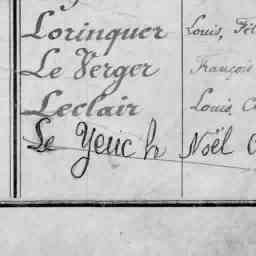 Lorinquer Louis, Fél
Le Verger François
Leclair Louis, C
Le Yeuc'h Noël